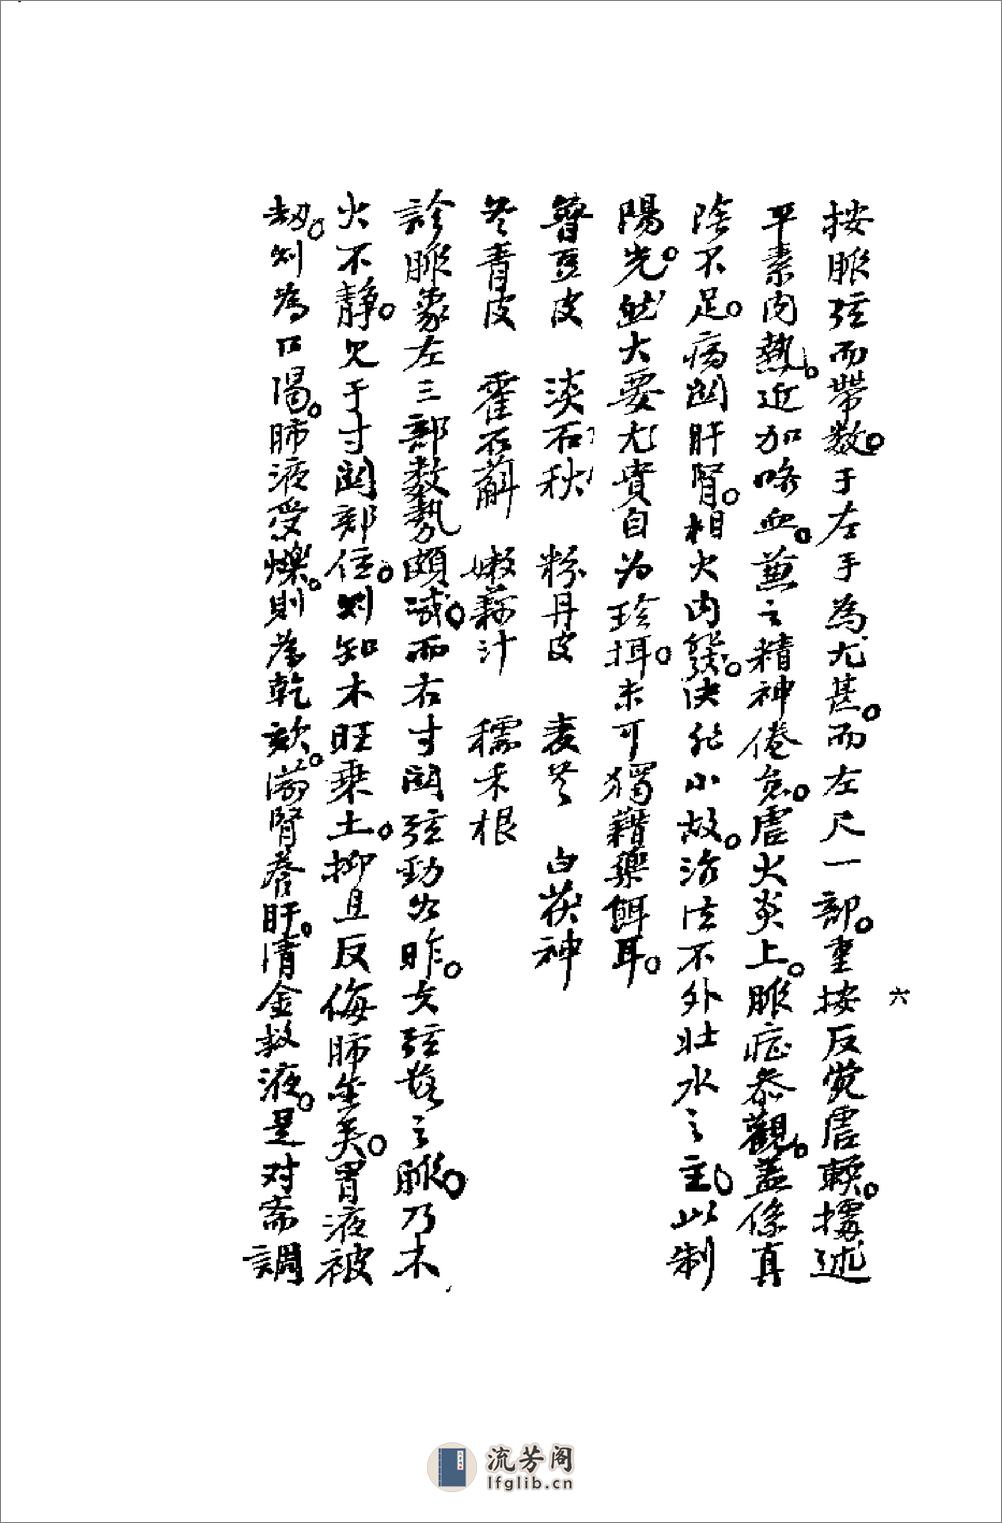 按脈弦而帶数。于左手為尤甚。而左尺一部。重按反覺虛軟。據述
平素内熱。近加咯血。兼之精神倦怠。虛火炎上。脈症叅觀。盖係真
陰不足。病関肝腎。相火内發。决非小故。治法不外壯水之主。以制
陽光。然大要尤貴自为珍攝。未可獨藉藥餌耳。
豆皮 淡石 粉丹皮 麦冬 白茯神
冬青皮 霍石斛 嫩藕汁 糯禾根
診脈象左三部数勢頗減。而右寸関弦勁如昨。夫弦者之脈。乃木
火不靜。見于寸関部位。則知木旺乗土。抑且反侮肺金矣。胃液被
劫。则為口渴。肺液受爍。則為乾欬。滋腎養肝。清金救液。是对斋調
六
流芳阁
lfglib.cn